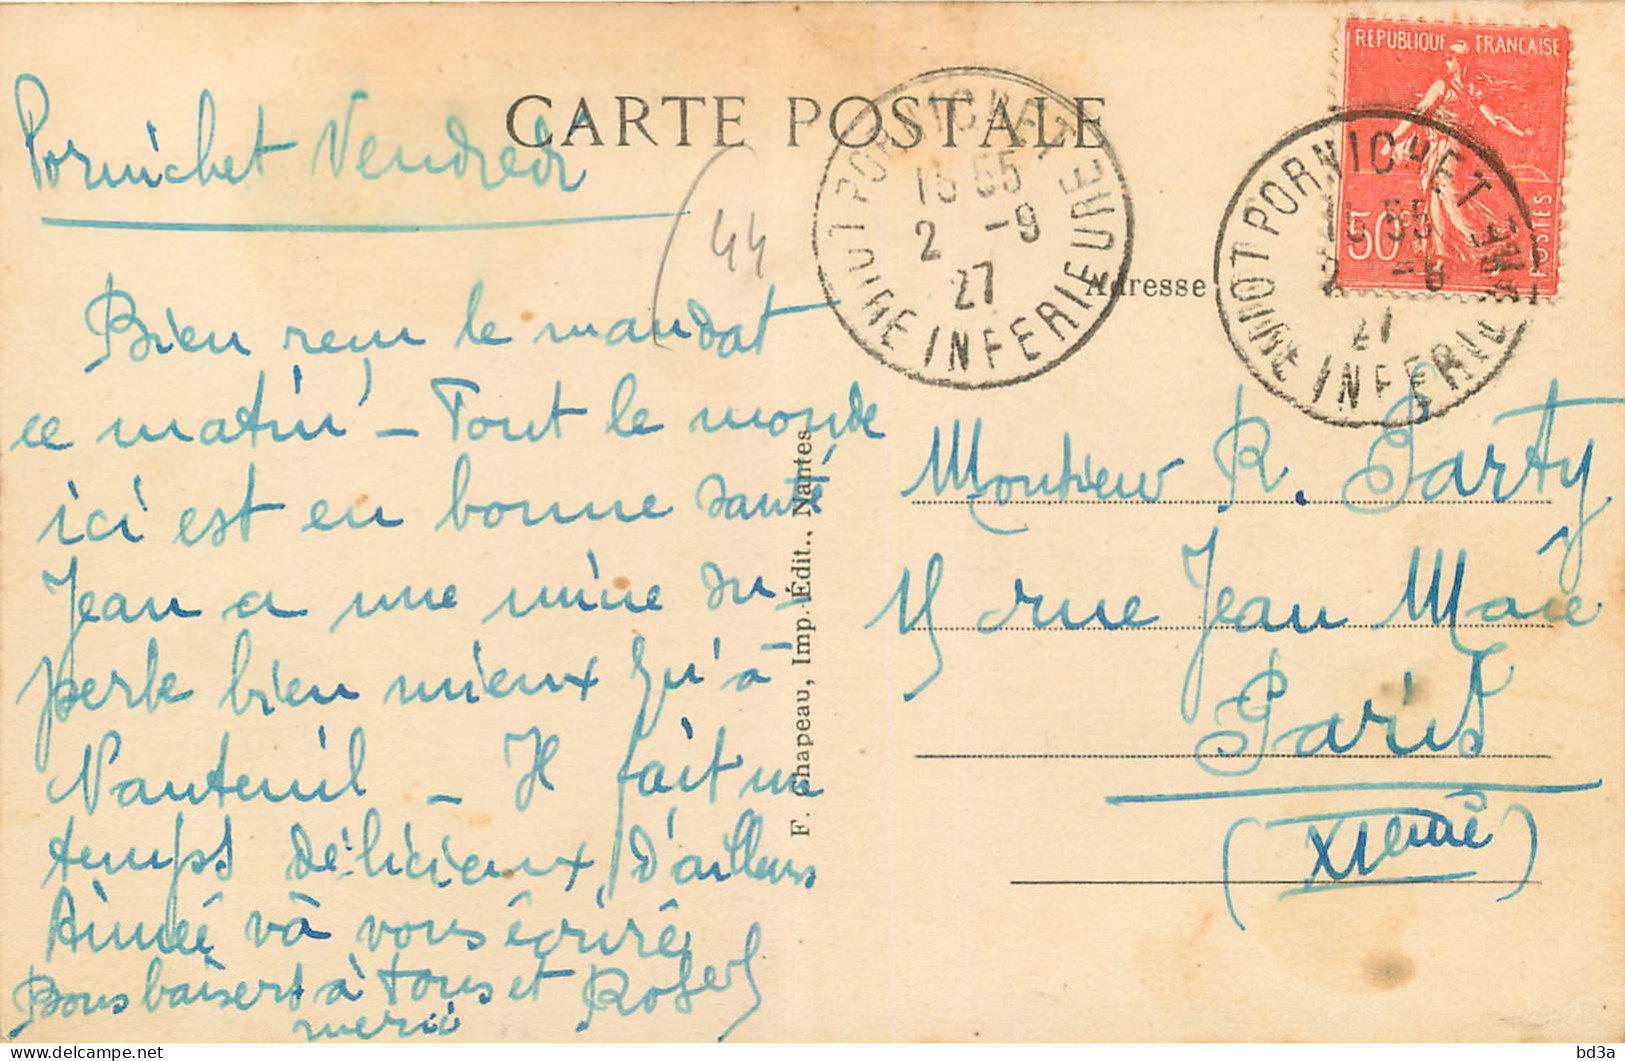 CARTE POSTALE
REPUBLIQUE FRANÇAISE
50c
POSTES
PORNICHET
15 55
2 -9
27
LOIRE INFERIEURE
PORNICHET
15 55
2 -9
27
LOIRE INFERIEURE
Pornichet Vendredi
44
Bien reçu le mandat
ce matin – Tout le monde
ici est en bonne santé
Jean a une mine su-
perbe bien mieux qu'à
Nanteuil – Il fait un
temps délicieux, d'ailleurs
Aimée va vous écrire
Bons baisers à tous et Robert
merci
F. Chapeau, Imp.-Édit., Nantes
Adresse
Monsieur R. Party
15 rue Jean Macé
Paris
(XIème)
bd3a